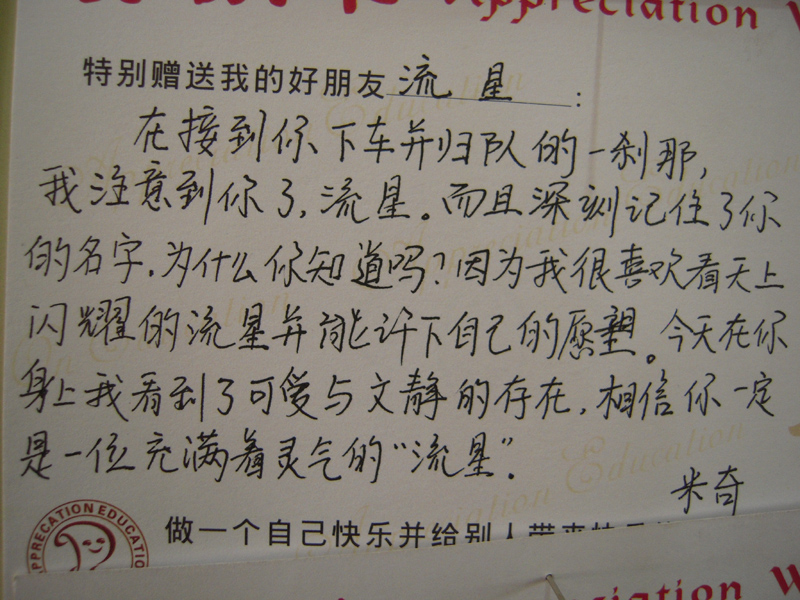 Appreciation W
特别赠送我的好朋友 流星：
在接到你下车并归队的一刹那，
我注意到你了，流星。而且深刻记住了你
的名字，为什么你知道吗？因为我很喜欢看天上
闪耀的流星并能许下自己的愿望。今天在你
身上我看到了可爱与文静的存在，相信你一定
是一位充满着灵气的“流星”。
米奇
APPRECATION EDUCATIO
做一个自己快乐并给别人带来快乐
ciation W